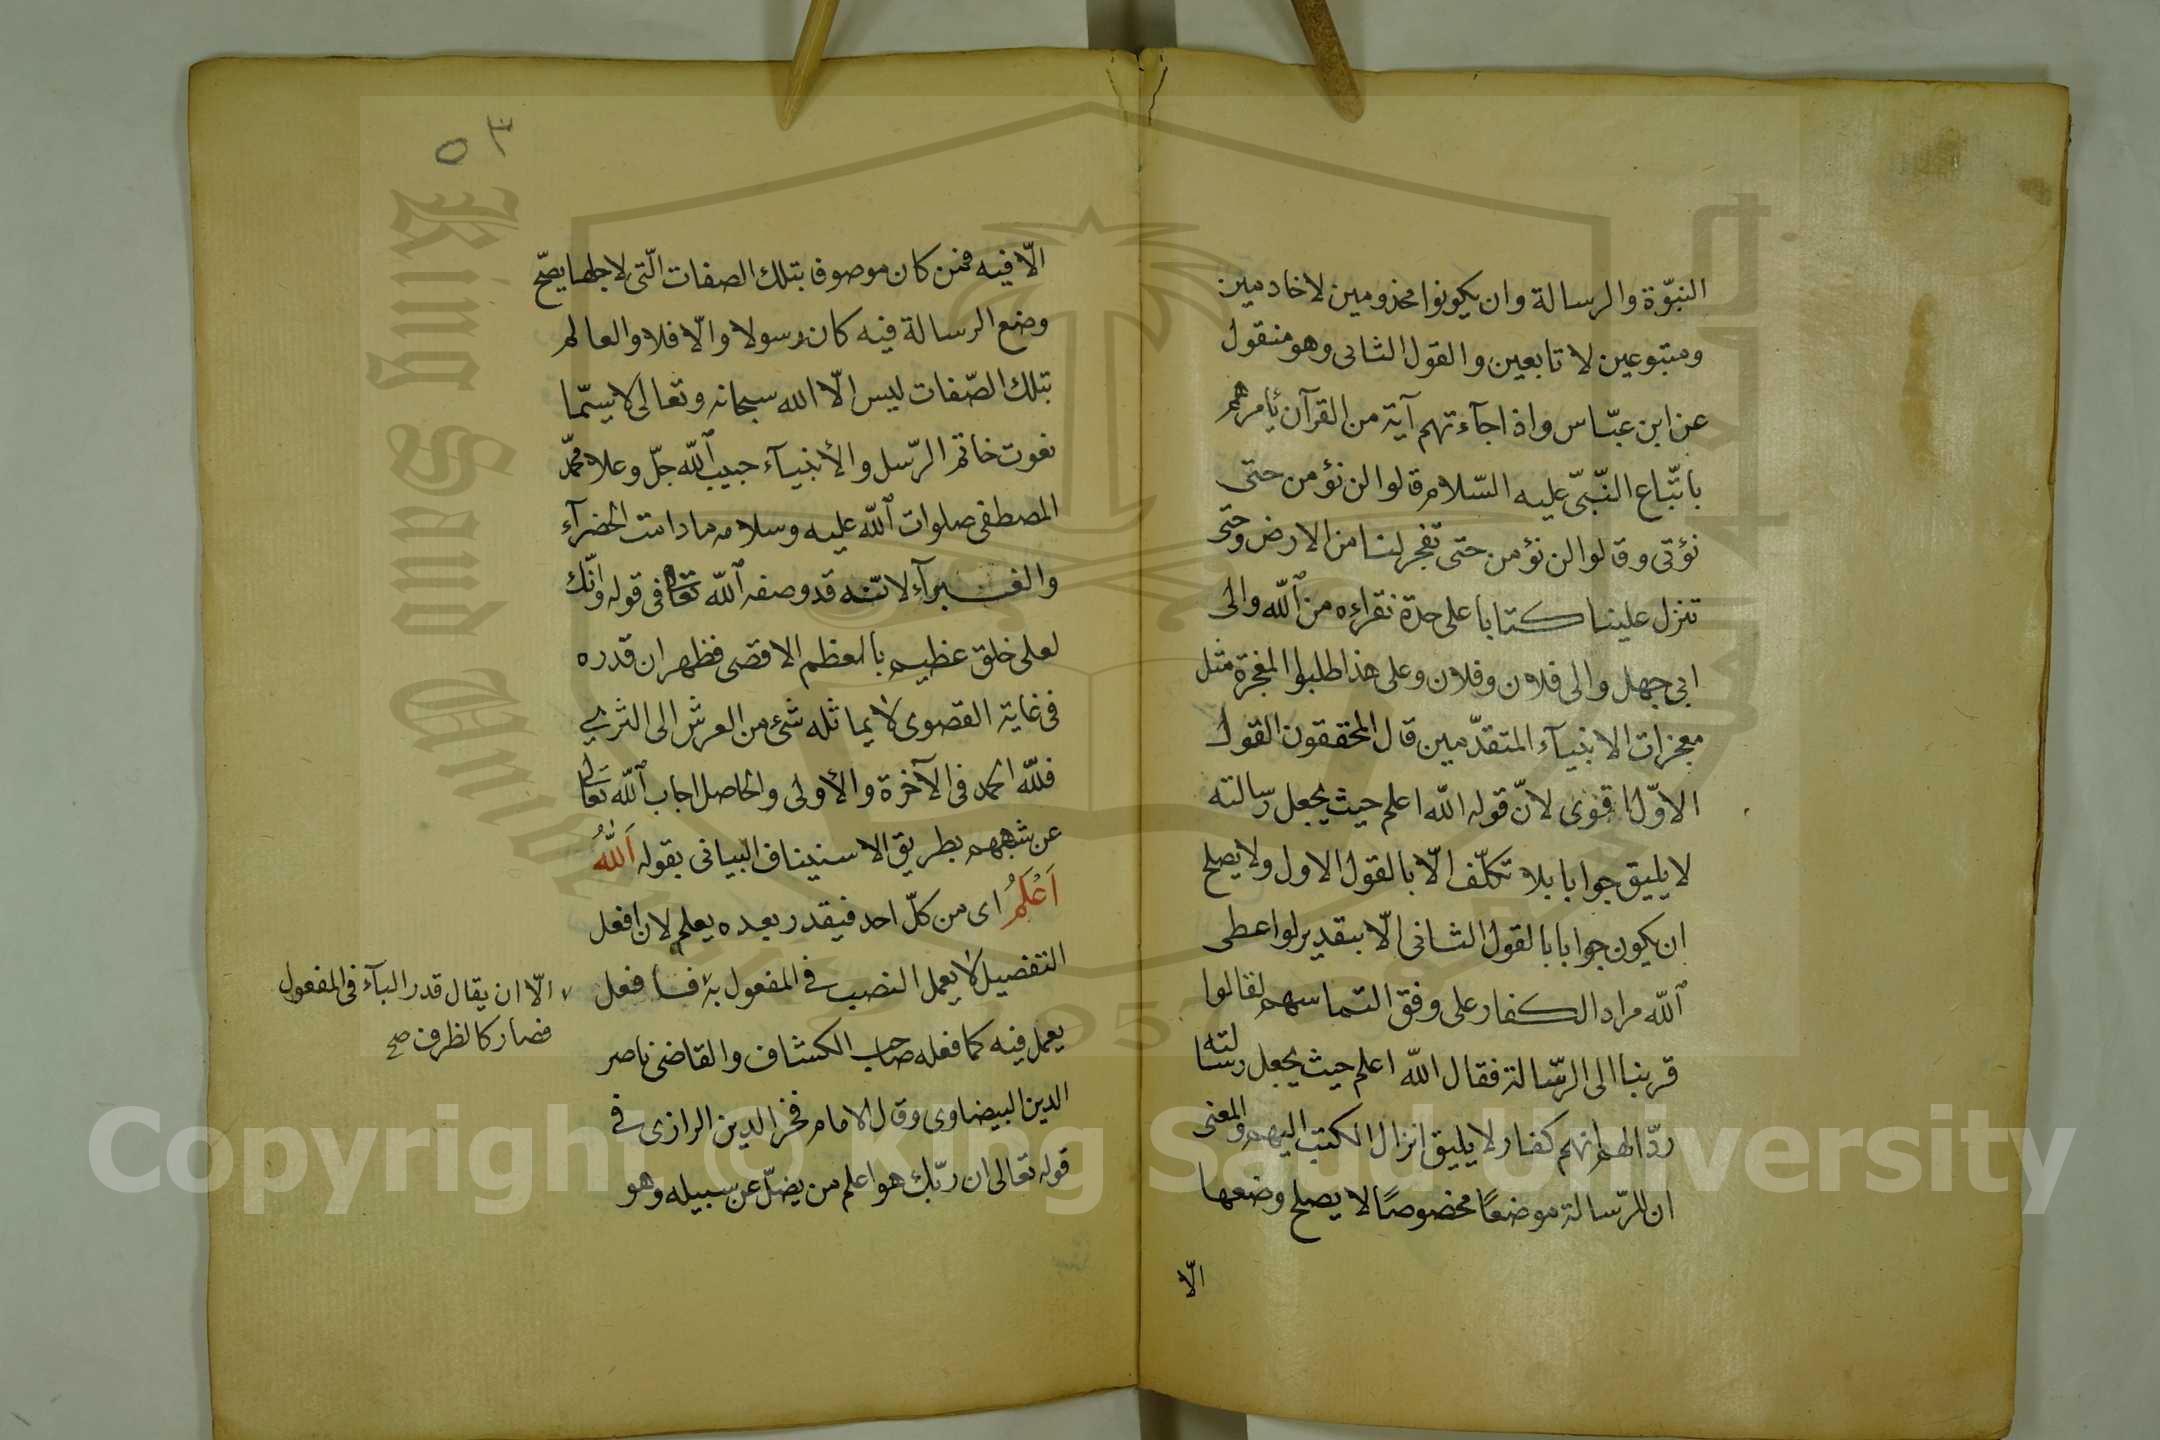 النبوّة والرسالة وان يكونوا مخدومين لا خادمين
ومتبوعين لا تابعين والقول الثانى وهو منقول
عن ابن عبّاس واذا جآءتهم آية من القرآن يأمرهم
باتّباع النّبىّ عليه السّلام قالوا لن نؤمن حتى
نؤتى وقالوا لن نؤمن حتى تفجر لنا من الارض وحتى
تنزل علينا كتابا على حدة نقراءه من الله والى
ابى جهل والى فلان وفلان وعلى هذا طلبوا المعجزة مثل
معجزات الانبيآء المتقدّمين قال المحققون القول
الاوّل اقوى لانّ قوله الله اعلم حيث يجعل رسالته
لا يليق جوابا بلا تكلّف الّا بالقول الاول ولا يصلح
ان يكون جوابا بالقول الثانى الّا بتقدير لو اعطى
الله مراد الكفار على وفق التماسهم لقالوا
قربنا الى الرّسالة فقال الله اعلم حيث يجعل رسالته
ردّا لهم انهم كفار لا يليق انزال الكتب اليهم والمعنى
ان للرّسالة موضعًا مخصوصًا لا يصلح وضعها
الّا
٥٣
الّا فيه فمن كان موصوفا بتلك الصفات الّتى لاجلها يصحّ
وضع الرسالة فيه كان رسولا والّا فلا والعالم
بتلك الصّفات ليس الّا الله سبحانه وتعالى لا سيّما
نعوت خاتم الرّسل والأنبيآء حبيب الله جلّ وعلا محمّد
المصطفى صلوات الله عليه وسلامه ما دامت الخضرآء
والغبرآء لانّه قد وصفه الله تعالى فى قوله وانّك
لعلى خلق عظيم بالعظم الاقصى فظهر ان قدره
فى غاية القصوى لا يماثله شئ من العرش الى الثرى
فللّه الحمد فى الآخرة والأولى والحاصل اجاب الله تعالى
عن شبههم بطريق الاستيناف البيانى بقوله اَللّٰهُ
اَعْلَمُ اى من كلّ احد فيقدر بعده يعلم لان افعل
التفضيل لا يعمل النصب فى المفعول به فا فعل
يعمل فيه كما فعله صاحب الكشاف والقاضى ناصر
الدين البيضاوى وقال الامام فخر الدين الرازى فى
قوله تعالى ان ربّك هو اعلم من يضلّ عن سبيله وهو
الّا ان يقال قدر البآء فى المفعول
فصار كالظرف صح
King Saud University
1957
Copyright © King Saud University